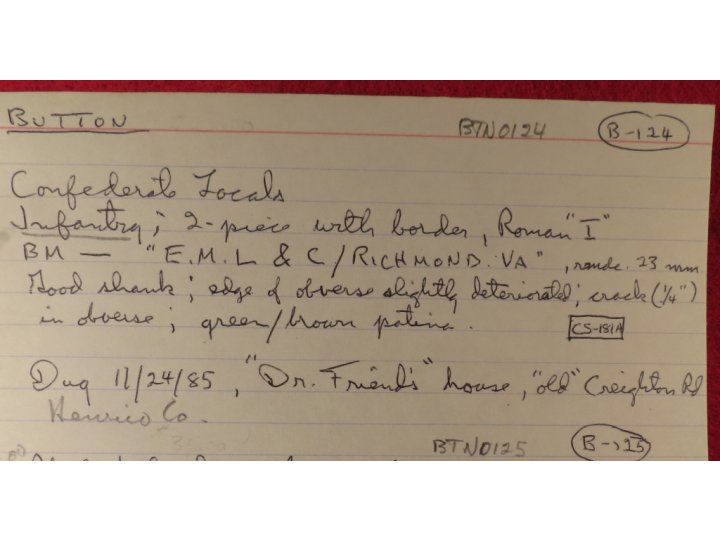 BUTTON BTN0124 B-124
Confederate Locals
Infantry; 2-piece with border, Roman "I"
BM — "E.M.L & C/RICHMOND. VA", 23 mm
Good shank; edge of obverse slightly deteriorated; crack (1/4")
in obverse; green/brown patina. CS-181A
Dug 11/24/85, "Dr. Friend's" house, "old" Creighton Rd
Henrico Co.
BTN0125 B-125